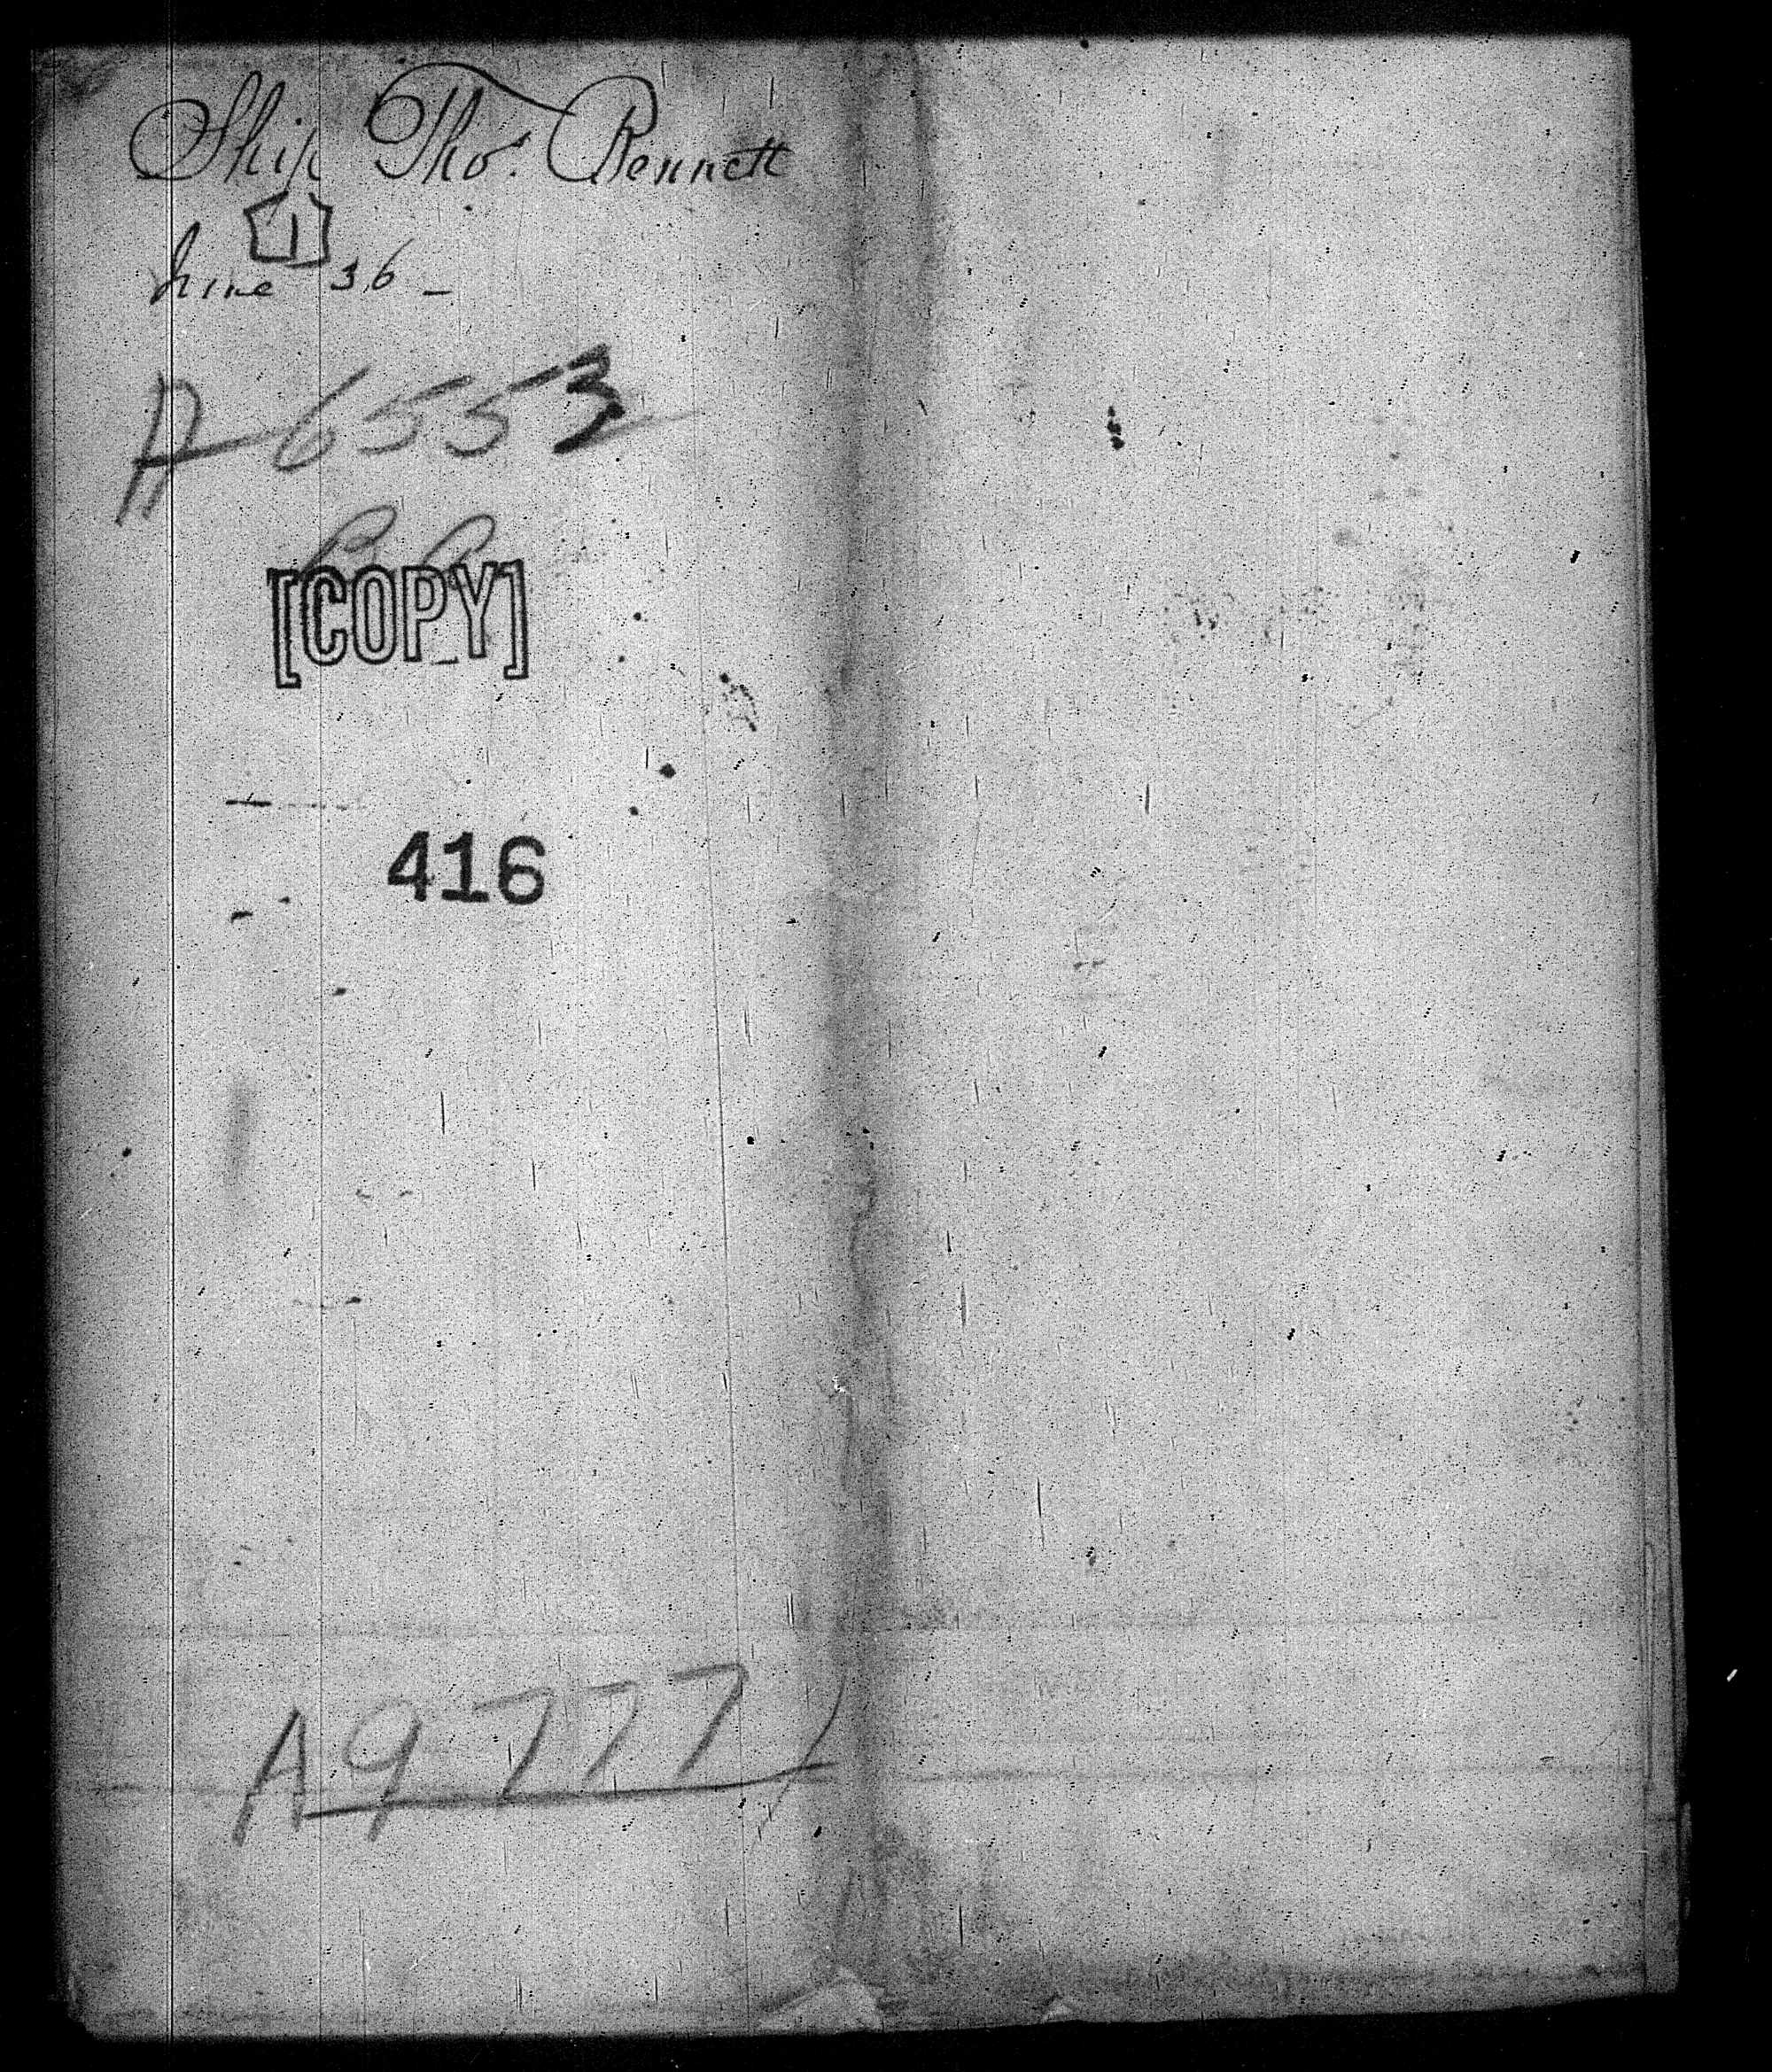 Ship Thos. Bennett
1
June 36 —
A 6553
[COPY]
416
A9777